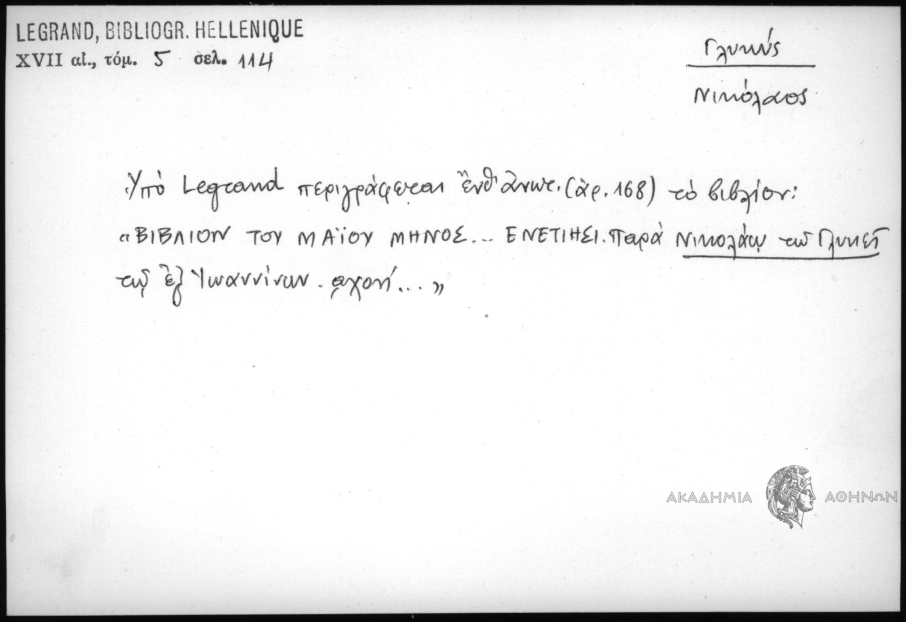 LEGRAND, BIBLIOGR. HELLENIQUE
XVII αἰ., τόμ. 5 σελ. 114
Γλυκύς
Νικόλαος
Ὑπό Legrand περιγράφεται ἔνθ' ἀνωτ. (ἀρ. 168) τό βιβλίον:
«ΒΙΒΛΙΟΝ ΤΟΥ ΜΑΪΟΥ ΜΗΝΟΣ... ΕΝΕΤΙΗΣΙ. παρά Νικολάῳ τῷ Γλυκεῖ
τῷ ἐξ Ἰωαννίνων. αχπή...»
ΑΚΑΔΗΜΙΑ ΑΘΗΝΩΝ